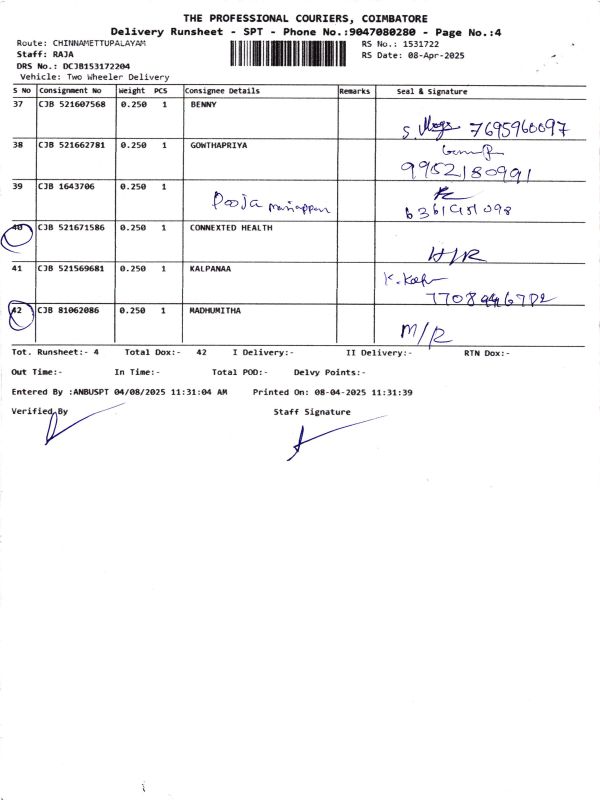 THE PROFESSIONAL COURIERS, COIMBATORE
Delivery Runsheet - SPT - Phone No.:9047080280 - Page No.:4
Route: CHINNAMETTUPALAYAM RS No.: 1531722
Staff: RAJA RS Date: 08-Apr-2025
DRS No.: DCJB153172204
Vehicle: Two Wheeler Delivery
S No Consignment No Weight PCS Consignee Details Remarks Seal & Signature
37 CJB 521607568 0.250 1 BENNY
S. 7695960097
38 CJB 521662781 0.250 1 GOWTHAPRIYA
9952180991
39 CJB 1643706 0.250 1
Pooja mariappan
40 CJB 521671586 0.250 1 CONNEXTED HEALTH
H/R
41 CJB 521569681 0.250 1 KALPANAA
42 CJB 81062086 0.250 1 MADHUMITHA
M/R
Tot. Runsheet:- 4 Total Dox:- 42 I Delivery:- II Delivery:- RTN Dox:-
Out Time:- In Time:- Total POD:- Delvy Points:-
Entered By :ANBUSPT 04/08/2025 11:31:04 AM Printed On: 08-04-2025 11:31:39
Verified By Staff Signature